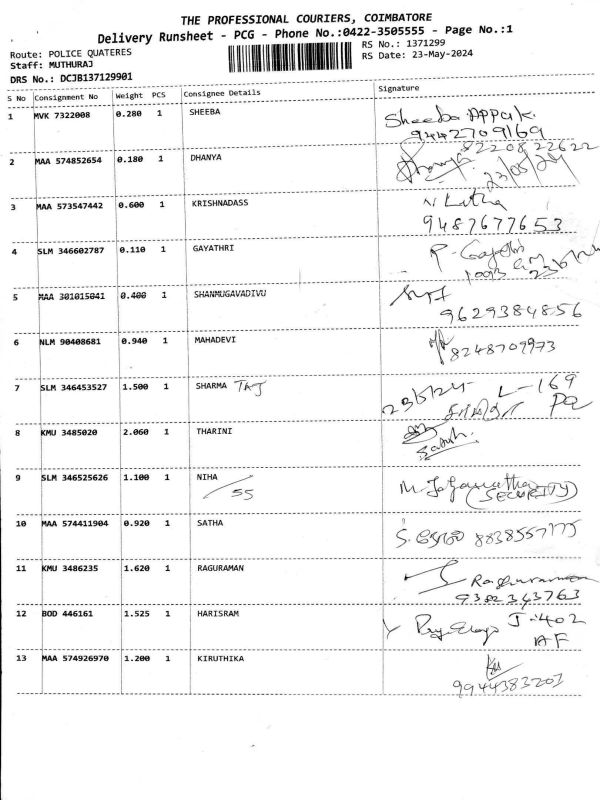 THE PROFESSIONAL COURIERS, COIMBATORE
Delivery Runsheet - PCG - Phone No.:0422-3505555 - Page No.:1
Route: POLICE QUATERES
RS No.: 1371299
Staff: MUTHURAJ
RS Date: 23-May-2024
DRS No.: DCJB137129901
S No Consignment No Weight PCS Consignee Details Signature
1 MVK 7322008 0.280 1 SHEEBA Sheeba
9442709169
8220822622
2 MAA 574852654 0.180 1 DHANYA Dhanya
23/05/24
3 MAA 573547442 0.600 1 KRISHNADASS N Latha
9487677653
4 SLM 346602787 0.110 1 GAYATHRI P. Gayathri
5 MAA 301015041 0.400 1 SHANMUGAVADIVU
9629384856
6 NLM 90408681 0.940 1 MAHADEVI
8248709973
7 SLM 346453527 1.500 1 SHARMA TAJ 23/5/24 L-169
8 KMU 3485020 2.060 1 THARINI
9 SLM 346525626 1.100 1 NIHA
55
(SECURITY)
10 MAA 574411904 0.920 1 SATHA
11 KMU 3486235 1.620 1 RAGURAMAN Raghuraman
9382343763
12 BOD 446161 1.525 1 HARISRAM J-402
AF
13 MAA 574926970 1.200 1 KIRUTHIKA
9944383203